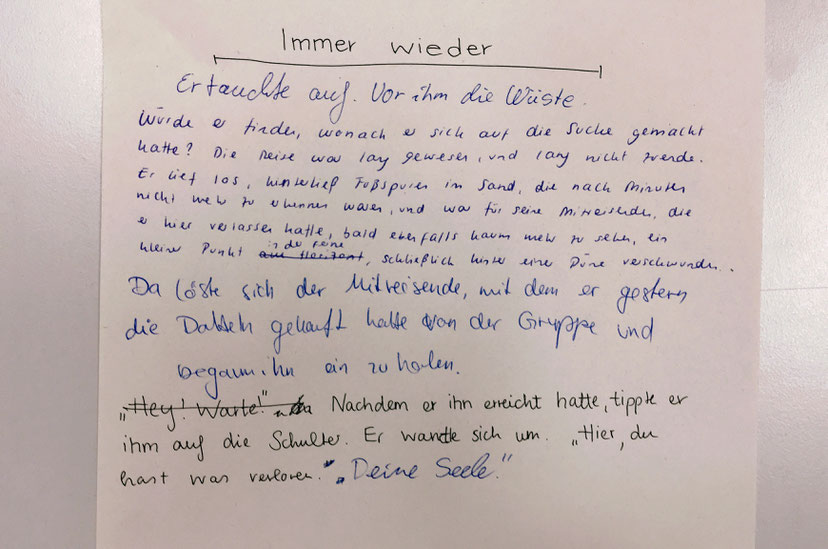 Immer wieder
Er tauchte auf. Vor ihm die Wüste.
Würde er finden, wonach er sich auf die Suche gemacht
hatte? Die Reise war lang gewesen, und lang nicht zuende.
Er lief los, hinterließ Fußspuren im Sand, die nach Minuten
nicht mehr zu erkennen waren, und war für seine Mitreisenden, die
er hier verlassen hatte, bald ebenfalls kaum mehr zu sehen, ein
kleiner Punkt am Horizont in der Ferne, schließlich hinter einer Düne verschwunden.
Da löste sich der Mitreisende, mit dem er gestern
die Datteln gekauft hatte von der Gruppe und
begann ihn ein zu holen.
"Hey! Warte!" Nachdem er ihn erreicht hatte, tippte er
ihm auf die Schulter. Er wandte sich um. „Hier, du
hast was verloren." „Deine Seele."